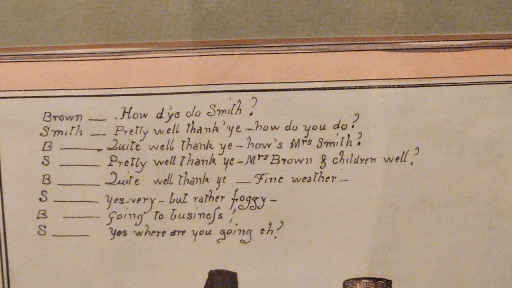 Brown — How d'ye do Smith?
Smith — Pretty well thank'ye – how do you do?
B — Quite well thank ye – how's Mrs Smith?
S — Pretty well thank ye – Mrs Brown & children well?
B — Quite well thank ye — Fine weather –
S — Yes very – but rather foggy –
B — Going to businefs?
S — Yes where are you going eh?